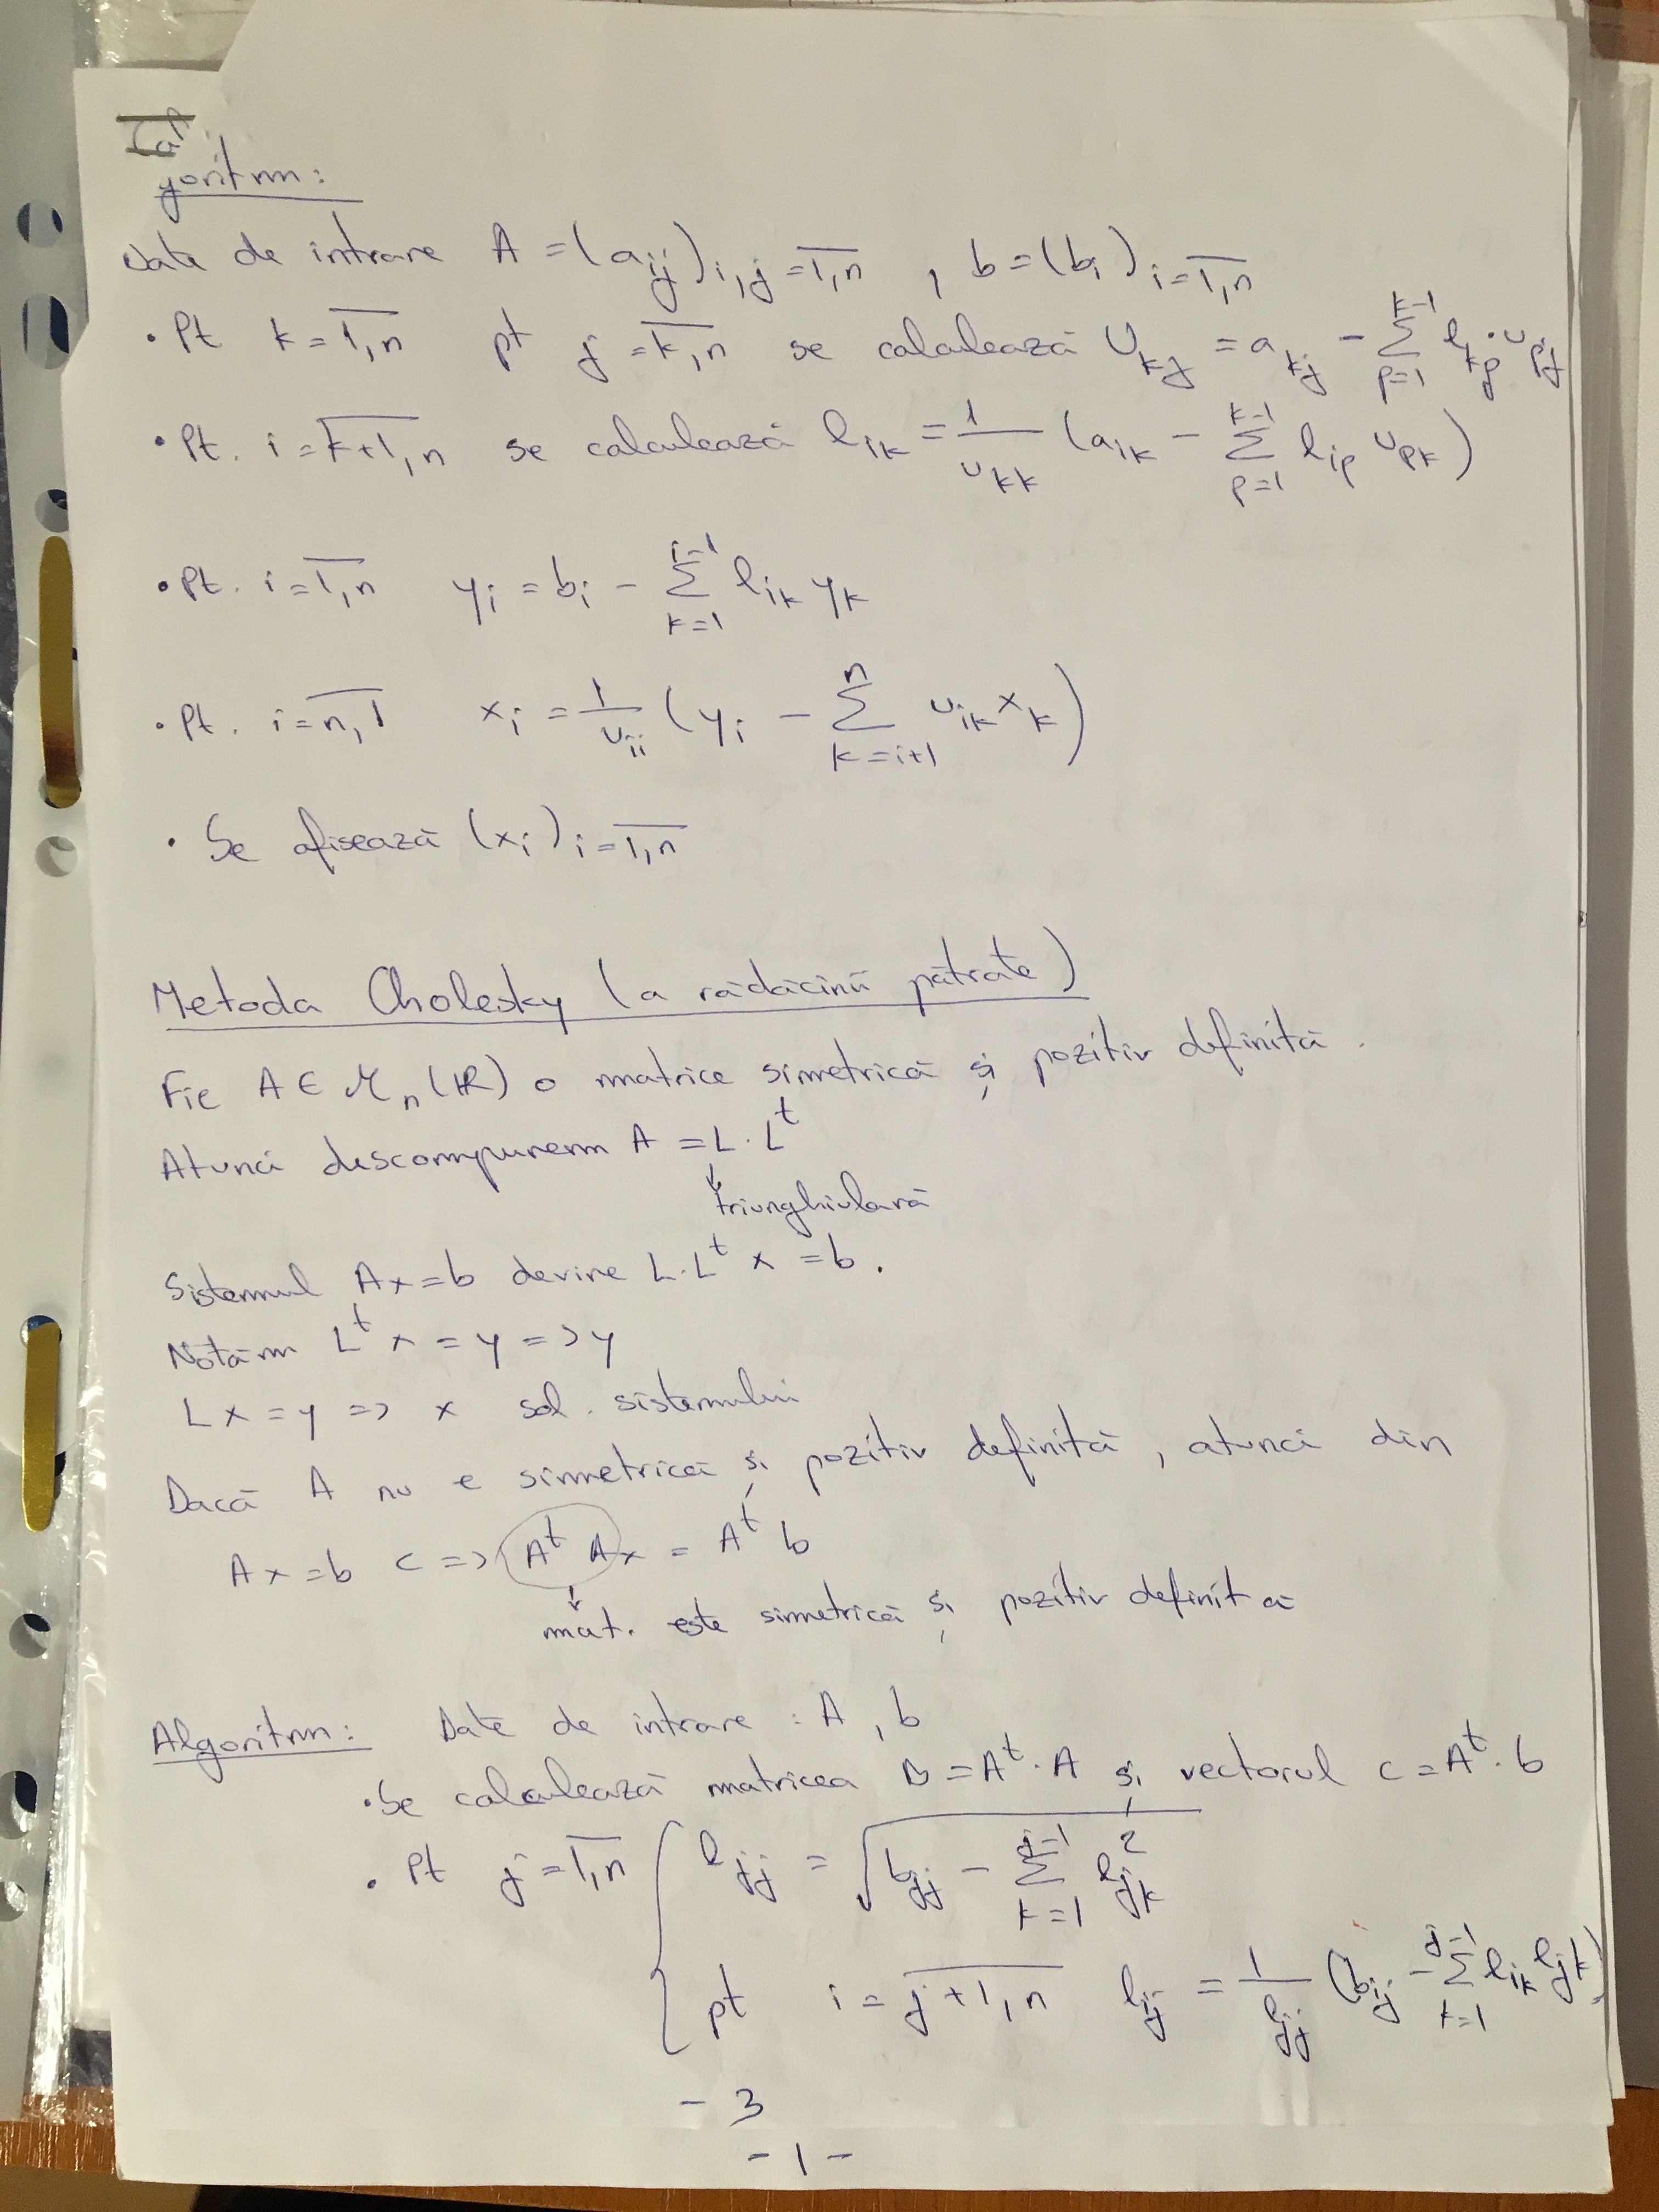 goritm:
Date de intrare A = (a_ij)_i,j=1,n , b = (b_i)_i=1,n
• Pt k = 1,n pt j = k,n se calculează U_kj = a_kj - Σ_{p=1}^{k-1} l_kp · u_pj
• Pt. i = k+1,n se calculează l_ik = 1/u_kk (a_ik - Σ_{p=1}^{k-1} l_ip u_pk)
• Pt. i = 1,n y_i = b_i - Σ_{k=1}^{i-1} l_ik y_k
• Pt. i = n,1 x_i = 1/u_ii (y_i - Σ_{k=i+1}^{n} u_ik x_k)
• Se afisează (x_i)_i=1,n
Metoda Cholesky (a rădăcinii pătrate)
Fie A ∈ M_n(IR) o matrice simetrică și pozitiv definită.
Atunci descompunem A = L · L^t
↓
triunghiulară
Sistemul Ax = b devine L·L^t x = b.
Notăm L^t x = y => y
Lx = y => x sol. sistemului
Dacă A nu e simetrică și pozitiv definită, atunci din
Ax = b <=> A^t Ax = A^t b
↓
mat. este simetrică și pozitiv definită
Algoritm: Date de intrare : A, b
• Se calculează matricea B = A^t · A și vectorul c = A^t · b
• Pt j = 1,n { l_jj = √(b_jj - Σ_{k=1}^{j-1} l_jk^2)
pt i = j+1,n l_ij = 1/l_jj (b_ij - Σ_{k=1}^{j-1} l_ik l_jk)
- 3
- 1 -